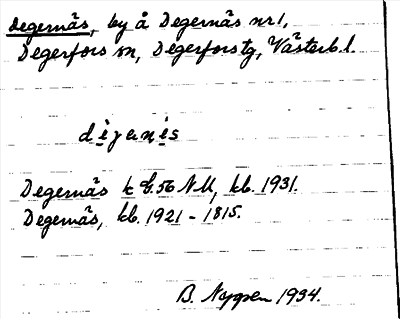 Degernäs, by å Degernäs nr 1,
Degerfors sn, Degerfors tg, Västerb. l.
Degernäs k bl. 56 NU, kb. 1931.
Degernäs, kb. 1921 - 1815.
B. 1934.